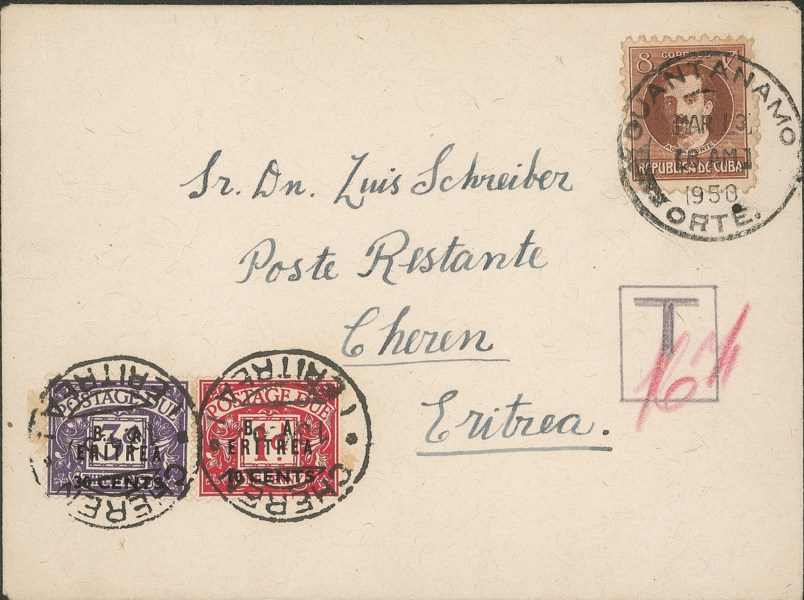 8 CORREOS
REPUBLICA DE CUBA
GUANTANAMO
MAR 13
1950
NORTE.
Sr. Dn. Luis Schreiber
Poste Restante
Cheren
Eritrea.
T
POSTAGE DUE
3d
B. A.
ERITREA
30 CENTS
POSTAGE DUE
1d
B. A.
ERITREA
10 CENTS
CHEREN
ERITREA
CHEREN
ERITREA